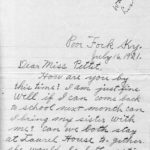 Poor Fork Ky.
July 16, 1921.
Dear Miss Pettit.
How are you by
this time? I am just fine
Well if I can come back
to school next month can
I bring my sister with
me? Can we both stay
at Laurel House to gether.